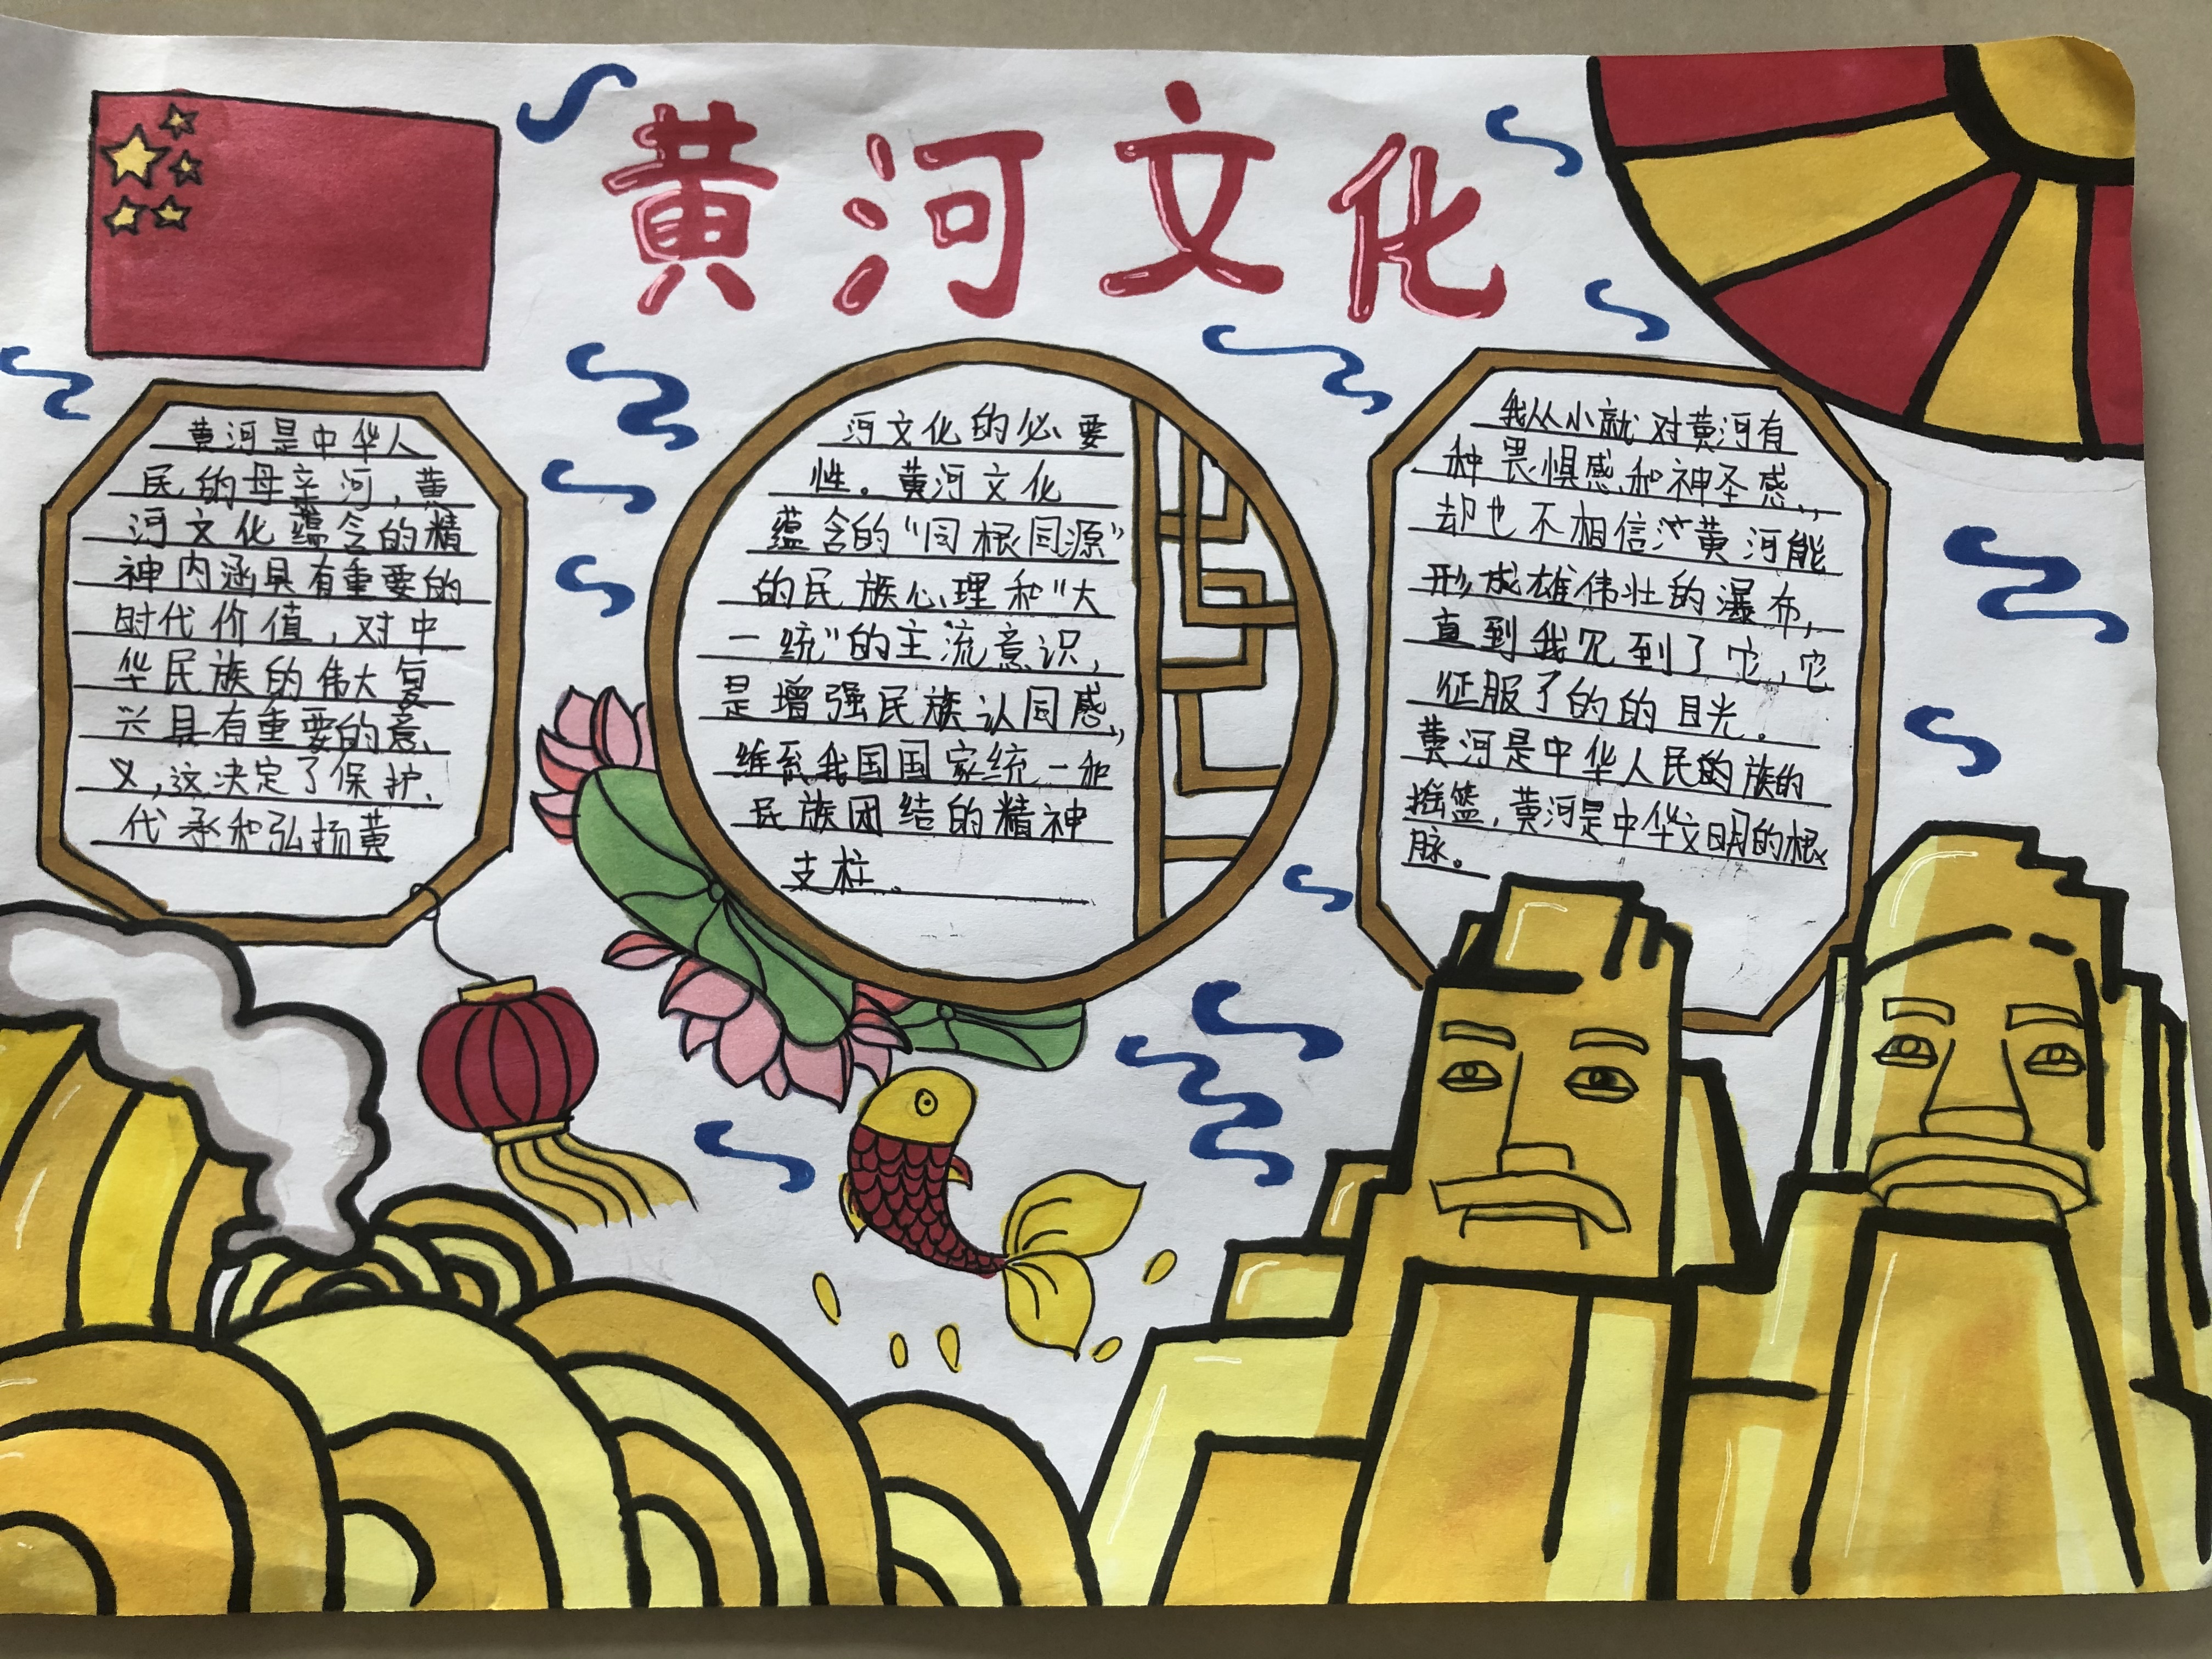 黄河文化
黄河是中华人
民的母亲河，黄
河文化蕴含的精
神内涵具有重要的
时代价值，对中
华民族的伟大复
兴具有重要的意
义，这决定了保护、
代承和弘扬黄
河文化的必要
性。黄河文化
蕴含的“同根同源”
的民族心理和“大
一统”的主流意识，
是增强民族认同感，
维系我国国家统一和
民族团结的精神
支柱。
我从小就对黄河有
种畏惧感和神圣感，
却也不相信黄河能
形成雄伟壮的瀑布，
直到我见到了它，它
征服了的的目光。
黄河是中华人民的族的
摇篮，黄河是中华文明的根
脉。